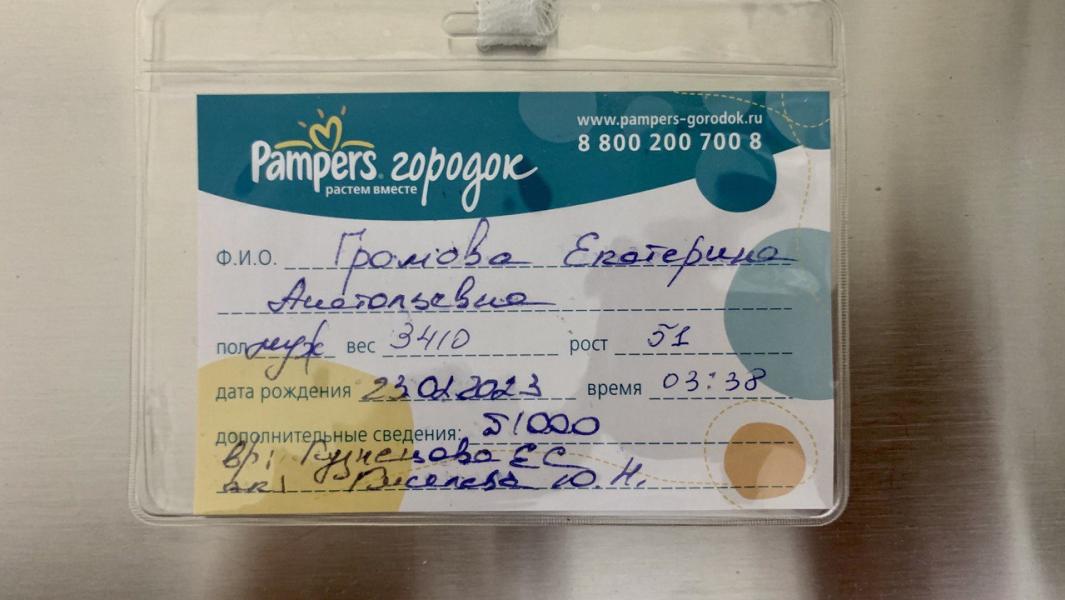 www.pampers-gorodok.ru
8 800 200 700 8
Pampers городок
растем вместе
Ф.И.О. Громова Екатерина
Анатольевна
пол муж вес 3410 рост 51
дата рождения 23.02.2023 время 03:38
дополнительные сведения: 51000
вр: Кузнецова ЕС
ак: Киселева Ю.Н.